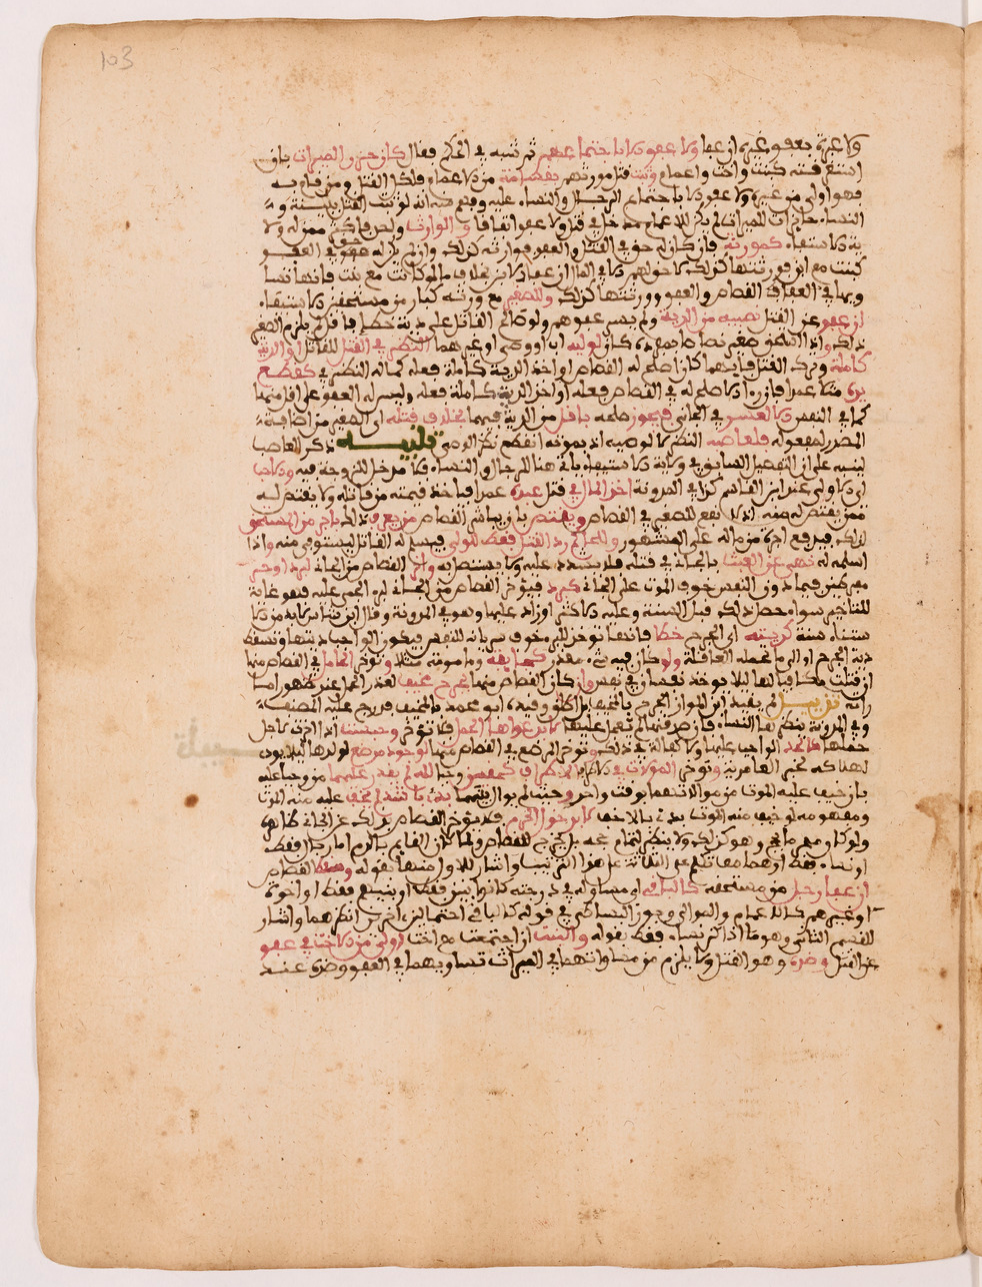 103
ولا عبرة بعفو غيره ان عفا ولا عفو الا باجتماعهم ثم شبه في الحكم فقال كان حزن الميراث بان
استتبع فيه كبنت واخت واعمام وثبت قتل مورثهم بقسامة من الاعمام فلكل القتل ومن قام به
فهو اولى من غيره ولا عفو الا باجتماع الرجال والنساء عليه وفهم منه انه لو ثبت القتل ببينة و
النساء حائزات للميراث لم يكن للاعمام مدخل في قتل ولا عفو اتفاقا والوارث ولحق
ية الاستيفاء كمورثه فان كان له حق في القتل والعفو فوارثه كذلك
كبنت مع ابن فورثتها كذلك لا حق لهم الا في المال ان عفا الابن بخلاف ما لو كانت مع بنت فانها تسا
ويها في العفو و القصاص والعفو وورثتها كذلك وللصغير مع ورثة كبار من مستحقين الاستيفاء
ان عفوا عن القتل نصيبه من الدية ولم يسر عفوهم ولو صالح القاتل على دية خطا فاقل لم يلزم الصغير
ذلك واذا استحق صغير قصاصا بمفرده كان لوليه اب او وصي او غيرهما النظر في القتل للقاتل او الدية
كاملة وترك القتل فايهما كان اصلح له القصاص او اخذ الدية كاملة فعله كما له النظر في كقطع
يده مثلا عمدا فان راى الاصلح له في القصاص فعله او اخذ الدية كاملة فعله وليس له العفو على اقل منها
كما في النفس الا لعسر في الجاني فيجوز صلحه باقل من الدية فيهما بخلاف قتله اي الصغير من اضافة
المصدر لمفعوله فلعاصبه النظر لا لوصيه اذ بموته انقطع نظر الوصي تنبيه ذكر للعاصب
لبنيه على ان التفصيل السابق في ولاية الاستيفاء ياتي هنا للرجال والنساء فلا مدخل للزوجة فيه والاحب
اي الاولى عند ابن القاسم كذا في المدونة اخذ المال في قتل عبده عمدا فياخذ قيمته من قاتله ولا يقتص له
ممن يقتص له منه اذ لا نفع للصغير في القصاص ويقتص بان يباشر القصاص من يعرف ذلك باجر من المستحق
لذلك فيدفع اجرة من ماله على المشهور وللحاكم رد القتل فقط للولي فيسلم له القاتل ليستوفي منه واذا
اسلمه له نهى عن العبث بالجاني في قتله فلا يشدد عليه ولا يستقصى به واخر القصاص من الجاني لبرد او حر
مفرطين فيما دون النفس خوف الموت على الجاني كبرد فيؤخر القصاص من الجاني لبرء المجني عليه فهو غاية
للتاخير سواء حصل ذلك قبل السنة وعليه الاكثر او زاد عليها وهو في المدونة وقال ابن شاس لا بد من الا
ستيناء سنة كديته اي الجرح خطا فانها تؤخر للبرء خوف سريانه للنفس فيكون الواجب ديتها وتسقط
دية الجرح او الى ما تحمله العاقلة ولو كان فيه شيء مقدر كجائفة ومامومة مثلا وتؤخر الحامل في القصاص منها
ان قتلت مكافيا لها لئلا يوخذ نفسان في نفس وان كان القصاص منها بجرح مخيف لعذر الحمل عند ظهور اما
راته تذييل لم يقيد ابن المواز الجرح بالمخيف بل اطلق وقيده ابو محمد بالمخيف فدرج عليه المصنف
وفي المدونة ينظر لها النساء فان صدقتها لم تعجل عليها لا بدعواها الحمل فلا تؤخر وحبست اذا اخرت لاجل
حملها كالحد الواجب عليها ولا كفالة في ذلك وتؤخر المرضع في القصاص منها لوجود مرضع لولدها لئلا يودى
لهلاكه لخبر الغامدية وتؤخر الموالات في الاطراف كحدين وجبا لله لم يقدر عليهما من وجبا عليه
بان خيف عليه الموت من موالاتهما بوقت واحد وحيث لم يوال بينهما بدئ باشد لم يخف عليه منه الموت
ومفهومه لو خيف منه الموت بدئ بالاخف لا بدخول الحرم فلا يؤخر القصاص بذلك عن الجاني ظاهره
ولو كان محرما بحج وهو كذلك ولا ينظر لتمام حجه بل يخرج للقصاص ولما كان القائم بالدم اما رجال فقط
او نساء فقط او هما معا تكلم على الثلاثة على هذا الترتيب واشار للاول منها بقوله وسقط القصاص
ان عفا رجل من مستحقيه كالباقي اي مساو له في درجته كانوا بنين فقط او بنيهم فقط او اخوة
او غيرهم كالاعمام والموالي وجوز البساطي في قوله كالباقي احتمالين اخرين انظرهما واشار
للقسم الثاني وهو ما اذا كن نساء فقط بقوله والبنت ان اجتمعت مع اخت اولى من الاخت في عفو
عن القتل وضده وهو القتل ولا يلزم من مساواتهما في الميراث تساويهما في العفو وضده عند